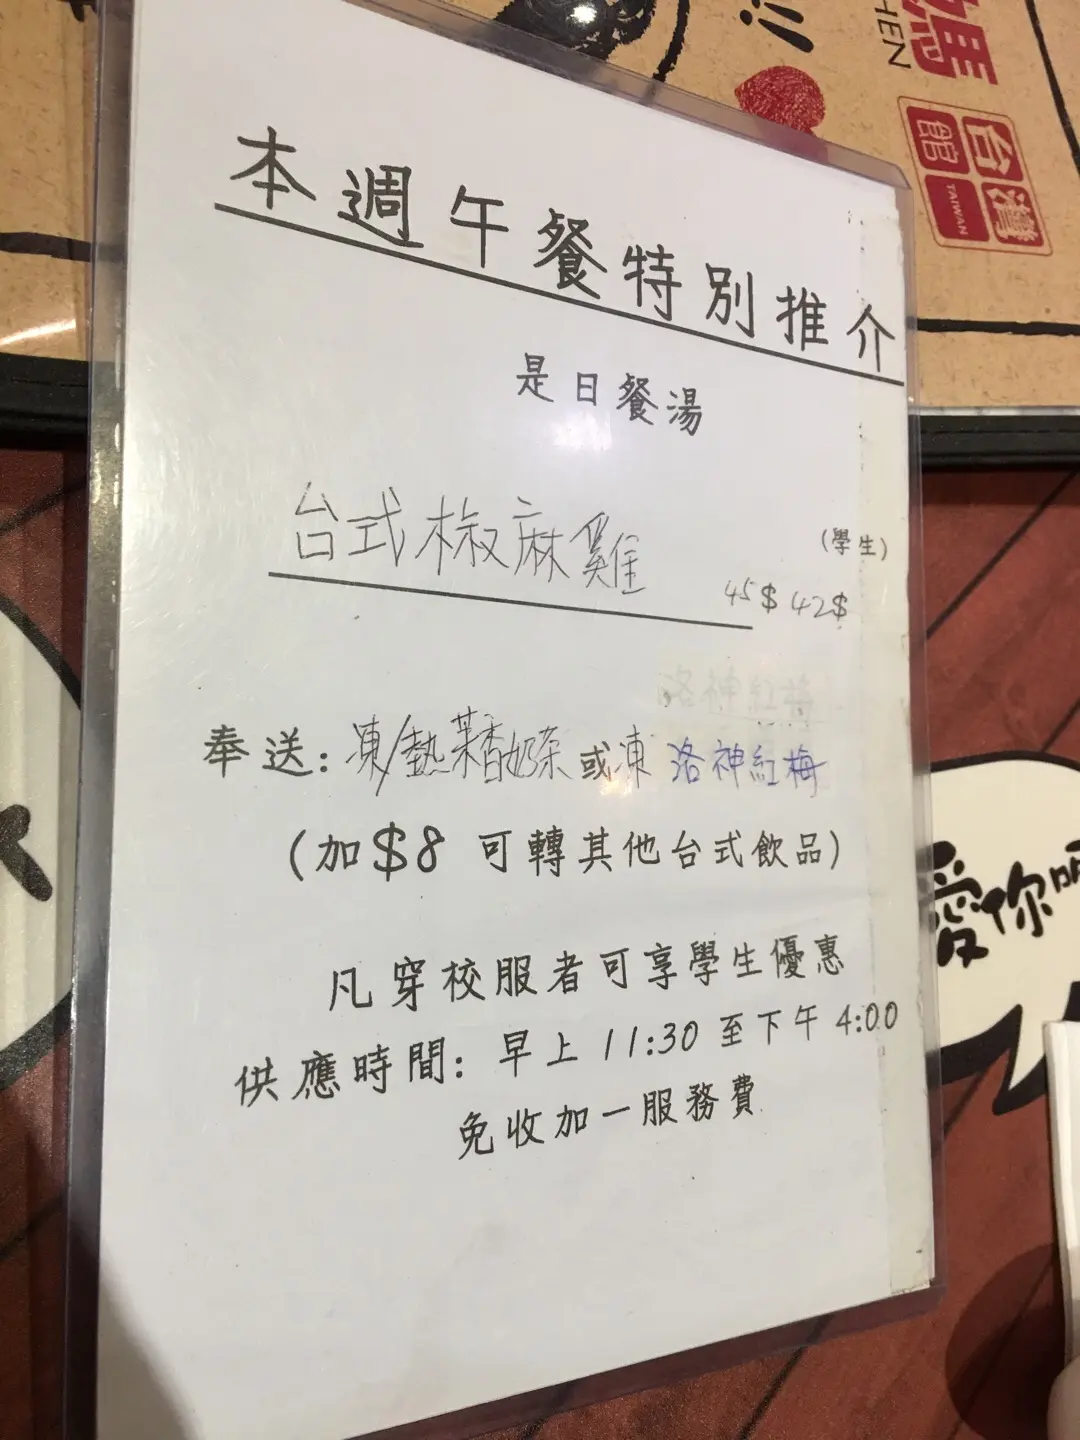 媽
HEN
台灣
館
TAIWAN
本週午餐特別推介
是日餐湯
台式椒麻雞
(學生)
45$ 42$
洛神紅梅
奉送: 凍/熱茉香奶茶 或 凍 洛神紅梅
(加$8 可轉其他台式飲品)
凡穿校服者可享學生優惠
供應時間: 早上 11:30 至下午 4:00
免收加一服務費
愛你